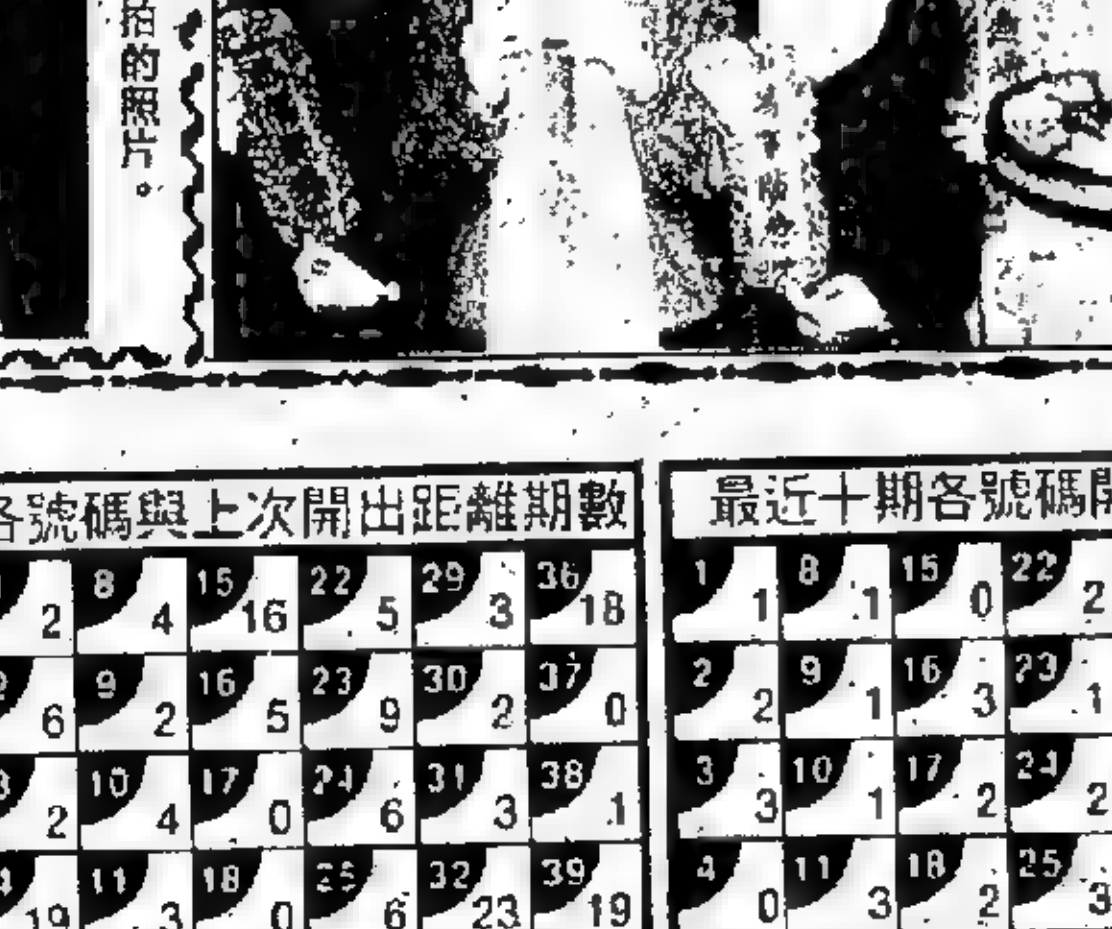 各號碼與上次開出距離期數
2 8 4 15 16 22 5 29 3 36 18
6 9 2 16 5 23 9 30 2 37 0
3 2 10 4 17 0 24 6 31 3 38 1
4 19 11 3 18 0 25 6 32 23 39 19
最近十期各號碼開
1 1 8 1 15 0 22 2
2 2 9 1 16 3 23 1
3 3 10 1 17 2 24 2
4 0 11 3 18 2 25 3